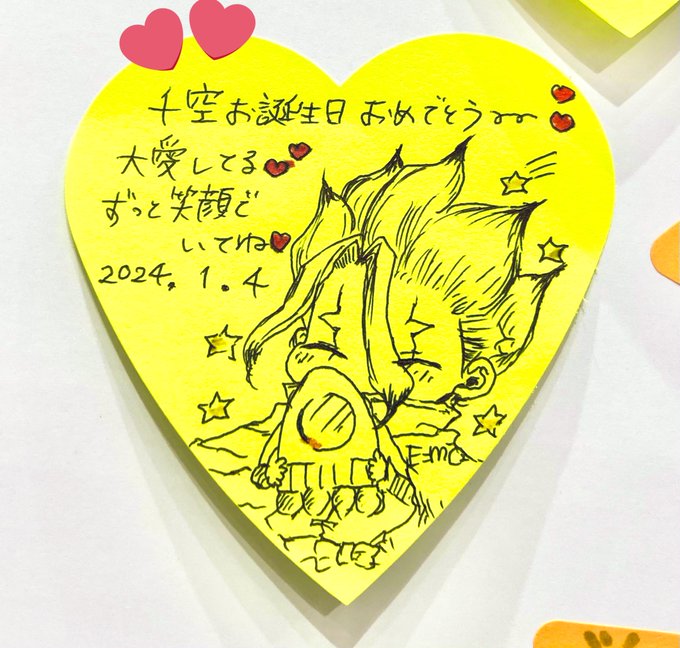 千空お誕生日おめでとう〜〜
大愛してる
ずっと笑顔で
いてね
2024.1.4
E=mc²